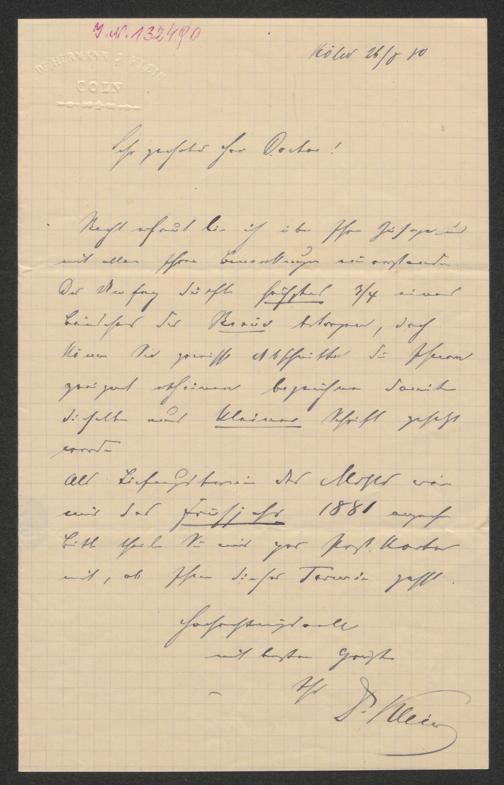 J.N. 132490
DR HERMANN J. KLEIN
CÖLN
Köln 26/8 80
Sehr geehrter Herr Doctor!
Recht erfreut bin ich über Ihre Zusage und
mit allen Ihren Bemerkungen einverstanden
Der Umfang dürfte höchstens 3/4 eines
Bändchens der Revue betragen, doch
können Sie gewisse Abschnitte die Ihnen
geeignet erscheinen bezeichnen damit
dieselben aus kleiner Schrift gesetzt
werden
Als Lieferungstermin des Mspts wäre
mir das Frühjahr 1881 angenehm
Bitte theilen Sie mir per Post-Karte
mit, ob Ihnen dieser Termin paßt.
Hochachtungsvoll
mit besten Grüßen
Ihr
Dr. Klein